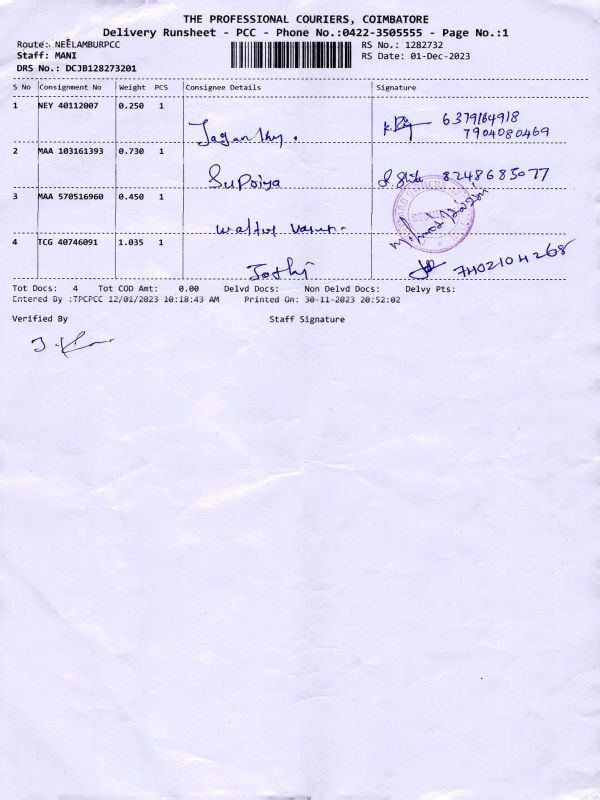 THE PROFESSIONAL COURIERS, COIMBATORE
Delivery Runsheet - PCC - Phone No.:0422-3505555 - Page No.:1
Route: NEELAMBURPCC RS No.: 1282732
Staff: MANI RS Date: 01-Dec-2023
DRS No.: DCJB128273201
S No Consignment No Weight PCS Consignee Details Signature
1 NEY 40112007 0.250 1
6379164918
Jagan thy. 7904080469
2 MAA 103161393 0.730 1
Supriya 8248685077
3 MAA 570516960 0.450 1
4 TCG 40746091 1.035 1
Jothi 7402104268
Tot Docs: 4 Tot COD Amt: 0.00 Delvd Docs: Non Delvd Docs: Delvy Pts:
Entered By :TPCPCC 12/01/2023 10:18:43 AM Printed On: 30-11-2023 20:52:02
Verified By Staff Signature